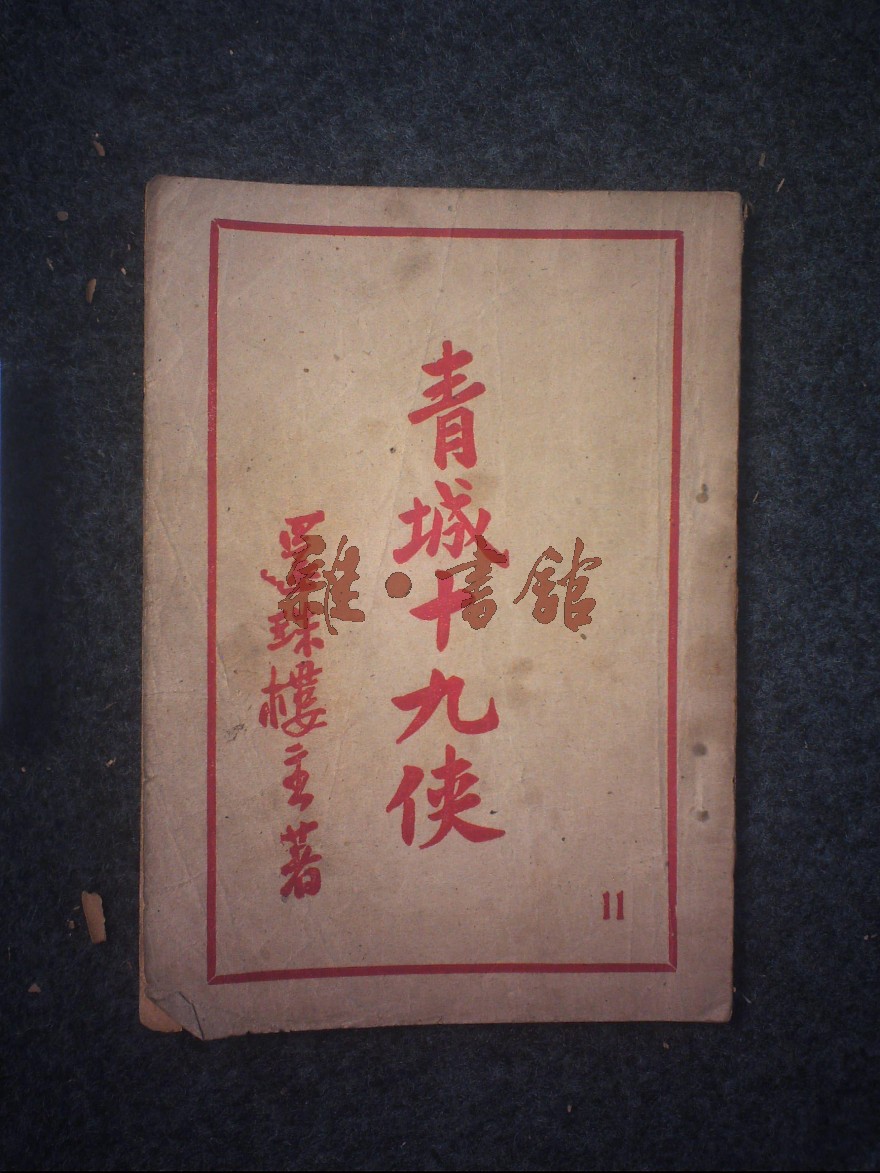 青城十九俠
還珠樓主著
11
雜·書館